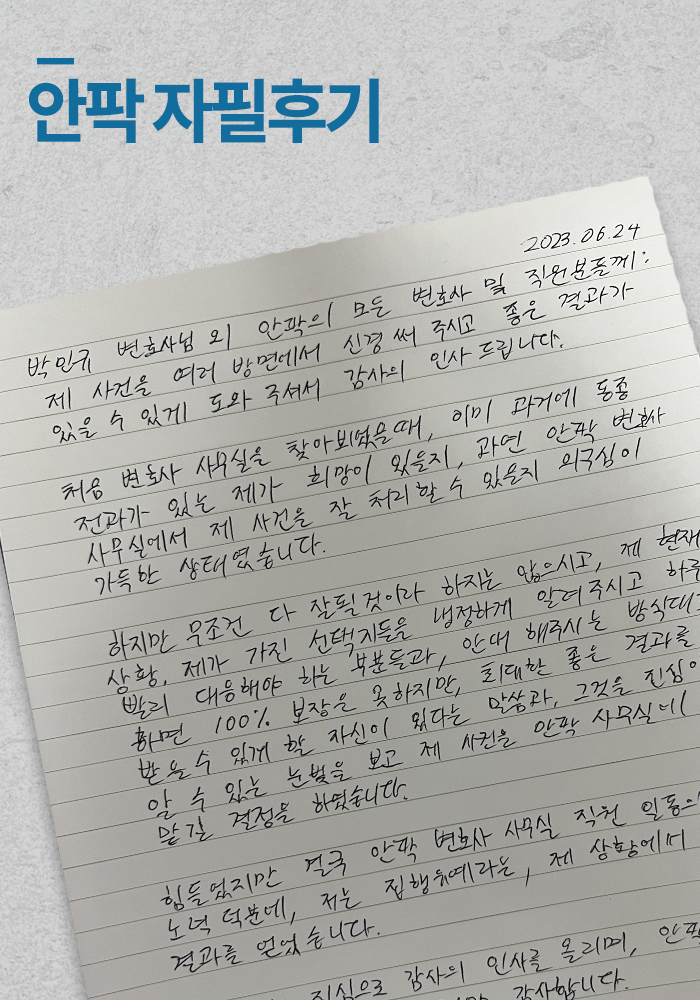 안팍 자필후기
2023.06.24
박민규 변호사님 외 안팍의 모든 변호사 및 직원분들께:
제 사건을 여러 방면에서 신경 써 주시고 좋은 결과가
있을 수 있게 도와 주셔서 감사의 인사 드립니다.
처음 변호사 사무실을 찾아뵈었을때, 이미 과거에 동종
전과가 있는 제가 희망이 있을지, 과연 안팍 변호사
사무실에서 제 사건을 잘 처리할 수 있을지 의구심이
가득한 상태였습니다.
하지만 무조건 다 잘될것이라 하지는 않으시고, 제 현재
상황, 제가 가진 선택지들을 냉정하게 알려주시고 하루
빨리 대응해야 하는 부분들과, 안내 해주시는 방식대로
하면 100% 보장은 못하지만, 최대한 좋은 결과를
받을 수 있게 할 자신이 있다는 말씀과, 그것을 진심
알 수 있는 눈빛을 보고 제 사건을 안팍 사무실에
맡길 결정을 하였습니다.
힘들었지만 결국 안팍 변호사 사무실 직원 일동의
노력 덕분에, 저는 집행유예라는, 제 상황에서
결과를 얻었습니다.
진심으로 감사의 인사를 올리며, 안팍
감사합니다.